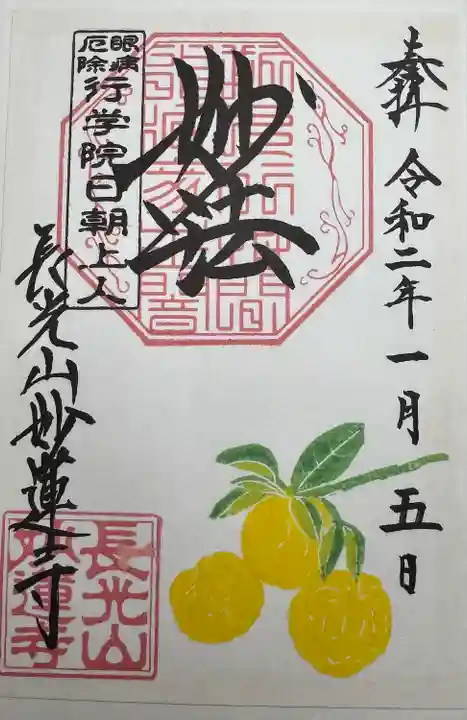 奉拝 令和二年一月五日
妙法
眼病
厄除
行学院日朝上人
長光山妙蓮寺
長光山
妙蓮寺